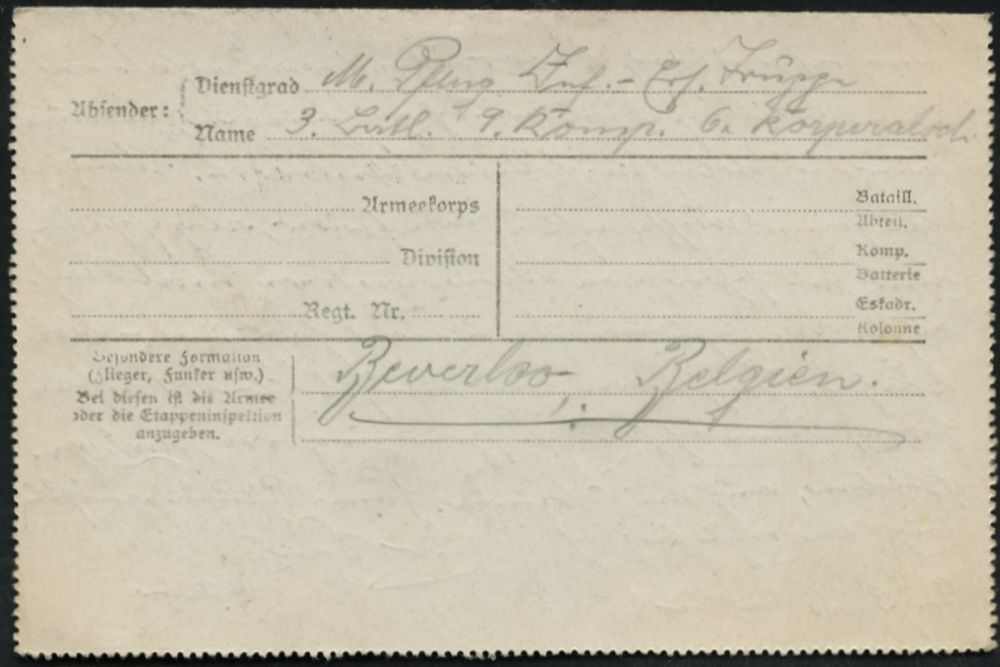 Absender:
Dienstgrad M. Inf.-Ers. Truppe
Name 3. 9. Komp. 6. Korporalsch.
Armeekorps
Bataill.
Abteil.
Division
Komp.
Batterie
Regt. Nr.
Eskadr.
Kolonne
Besondere Formation
(Flieger, Funker usw.)
Bei diesen ist die Armee
oder die Etappeninspektion
anzugeben.
Beverloo, Belgien.